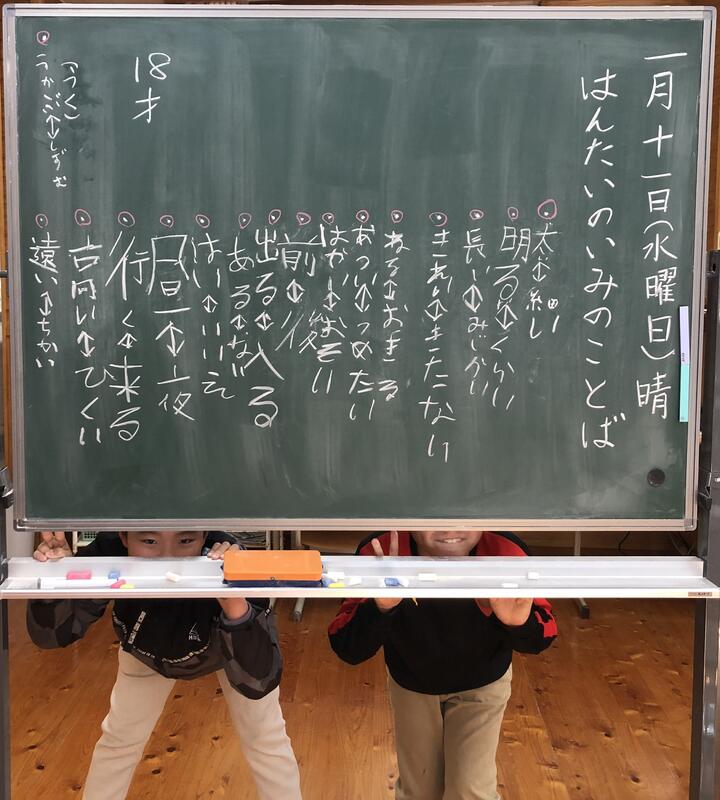 一月十一日(水曜日)晴
はんたいのいみのことば
太い↕細い
明る↕くらい
長い↕みじかい
きれい↕きたない
ねる↕おきる
あつい↕つめたい
はやい↕おそい
前↕後
出る↕入る
ある↕ない
はい↕いいえ
↕夜
行く↕来る
高い↕ひくい
遠い↕ちかい
18才
(うく)
うかぶ↕しずむ